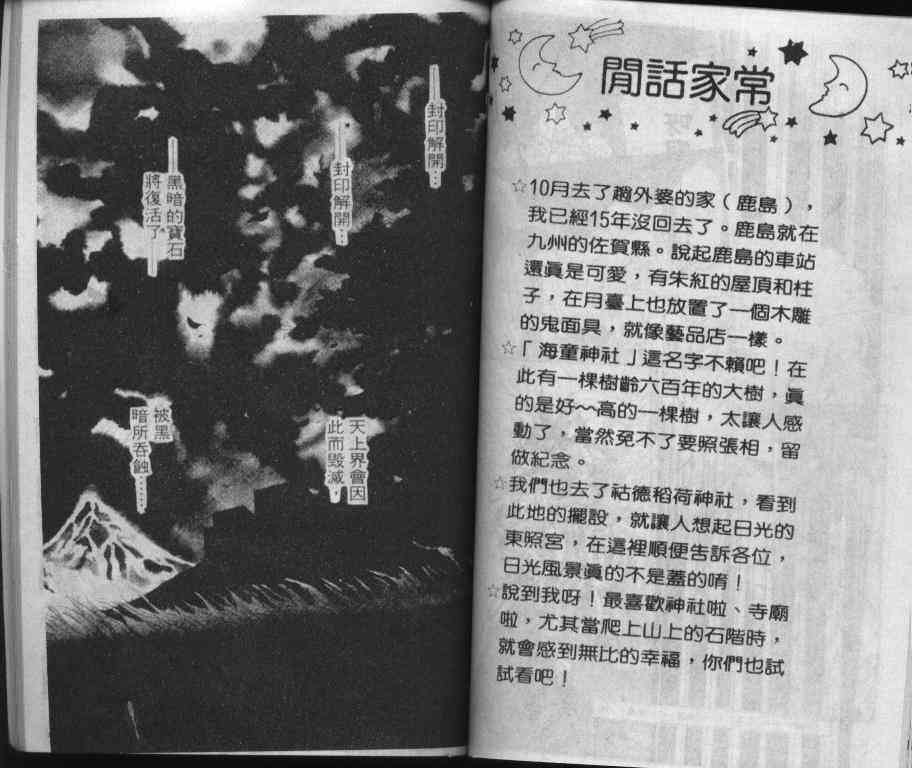 封印解開…
——封印解開…
——黑暗的寶石
將復活了——
天上界會因
此而毀滅，
被黑
暗所吞蝕……
閒話家常
☆10月去了趟外婆的家（鹿島），
我已經15年沒回去了。鹿島就在
九州的佐賀縣。說起鹿島的車站
還真是可愛，有朱紅的屋頂和柱
子，在月臺上也放置了一個木雕
的鬼面具，就像藝品店一樣。
☆「海童神社」這名字不賴吧！在
此有一棵樹齡六百年的大樹，真
的是好～高的一棵樹，太讓人感
動了，當然免不了要照張相，留
做紀念。
☆我們也去了祜德稻荷神社，看到
此地的擺設，就讓人想起日光的
東照宮，在這裡順便告訴各位，
日光風景真的不是蓋的唷！
☆說到我呀！最喜歡神社啦、寺廟
啦，尤其當爬上山上的石階時，
就會感到無比的幸福，你們也試
試看吧！